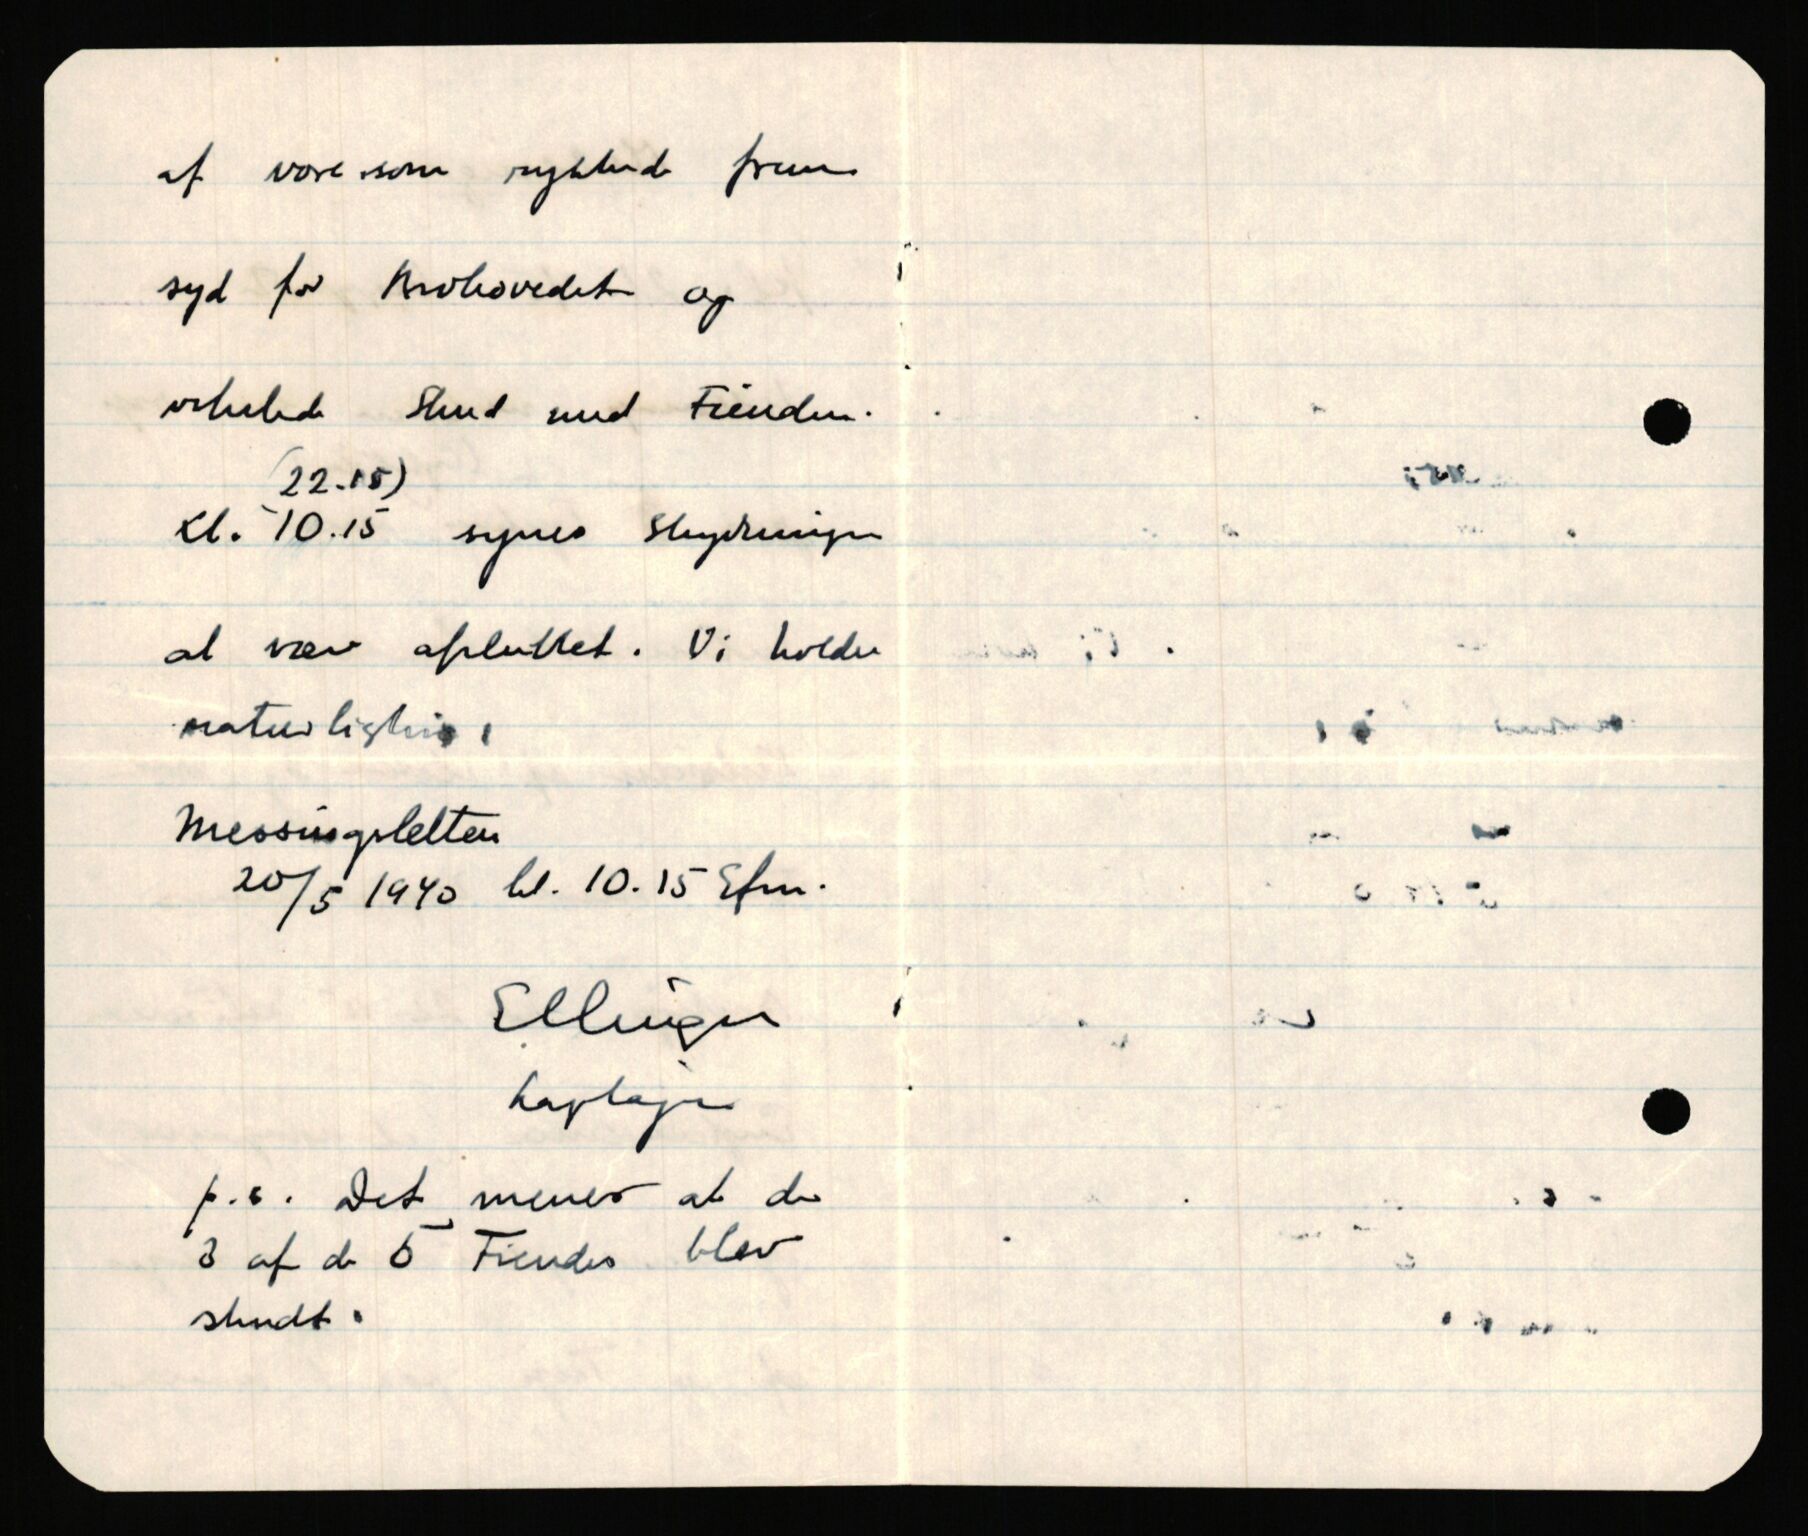 af vore som rykkede frem
syd for Brohovedet og
vekslede Skud med Fienden.
(22.15)
Kl. 10.15 synes Skydningen
at være afsluttet. Vi holder
naturligvis
Messingsletten
20/5 1940 kl. 10.15 Efm.
Ellinger
Kaptajn
p.s. Det menes at de
3 af de 5 Fiender blev
skudt.